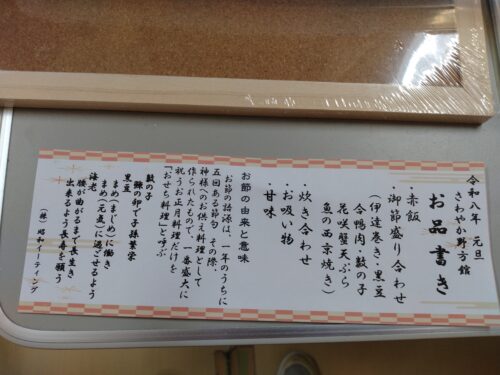 令和八年 元旦
さわやか野方館
お品書き
・赤飯
・御節盛り合わせ
(伊達巻き・黒豆
合鴨肉・数の子
花咲蟹天ぷら
魚の西京焼き)
・炊き合わせ
・お吸い物
・甘味
お節の由来と意味
お節の語源は、一年のうちに
五回ある節句 その際、
神様へのお供え料理として
作られたもので、一番盛大に
祝うお正月料理だけを
「おせち料理」と呼ぶ
数の子
鰊の卵で子孫繁栄
黒豆
まめ(まじめ)に働き
まめ(元気)に過ごせるよう
海老
腰が曲がるまで長生き
出来るよう長寿を願う
(株) 昭和ケータリング